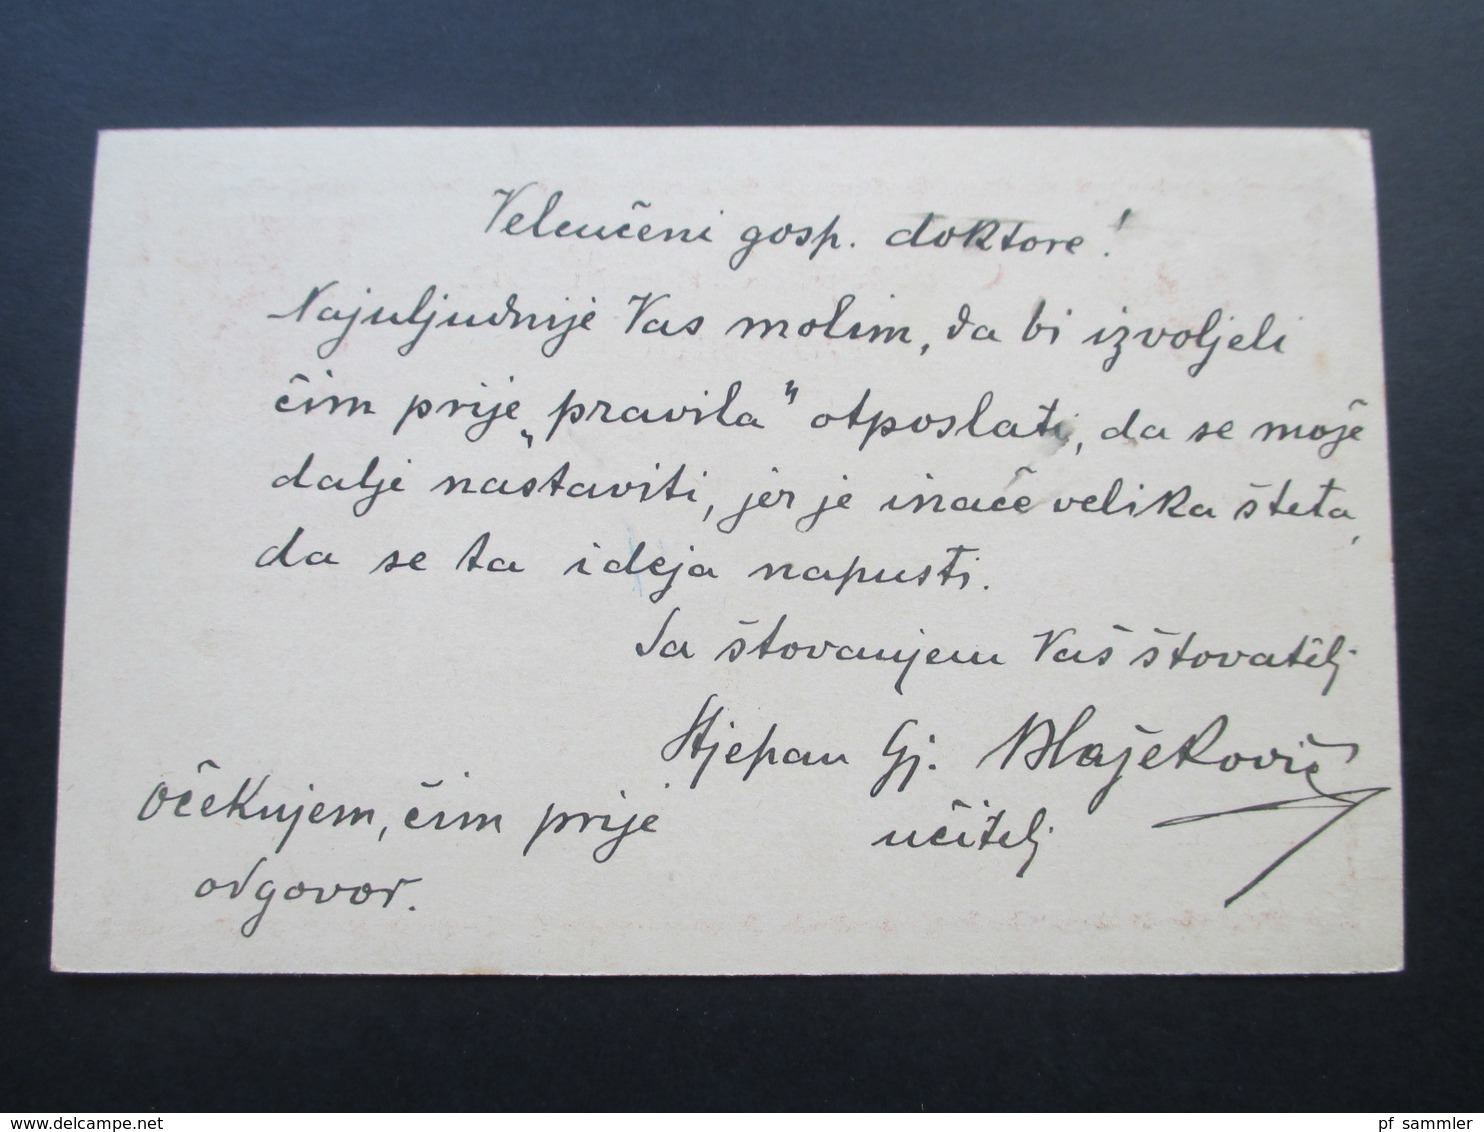 Veleučeni gosp. doktore!
Najuljudnije Vas molim, da bi izvoljeli
čim prije „pravila" otposlati, da se može
dalje nastaviti, jer je inače velika šteta,
da se ta ideja napusti.
Sa štovanjem Vaš štovatelj
Stjepan Gj. Blažeković
učitelj
Očekujem, čim prije
odgovor.
delcampe.net
pf_sammler